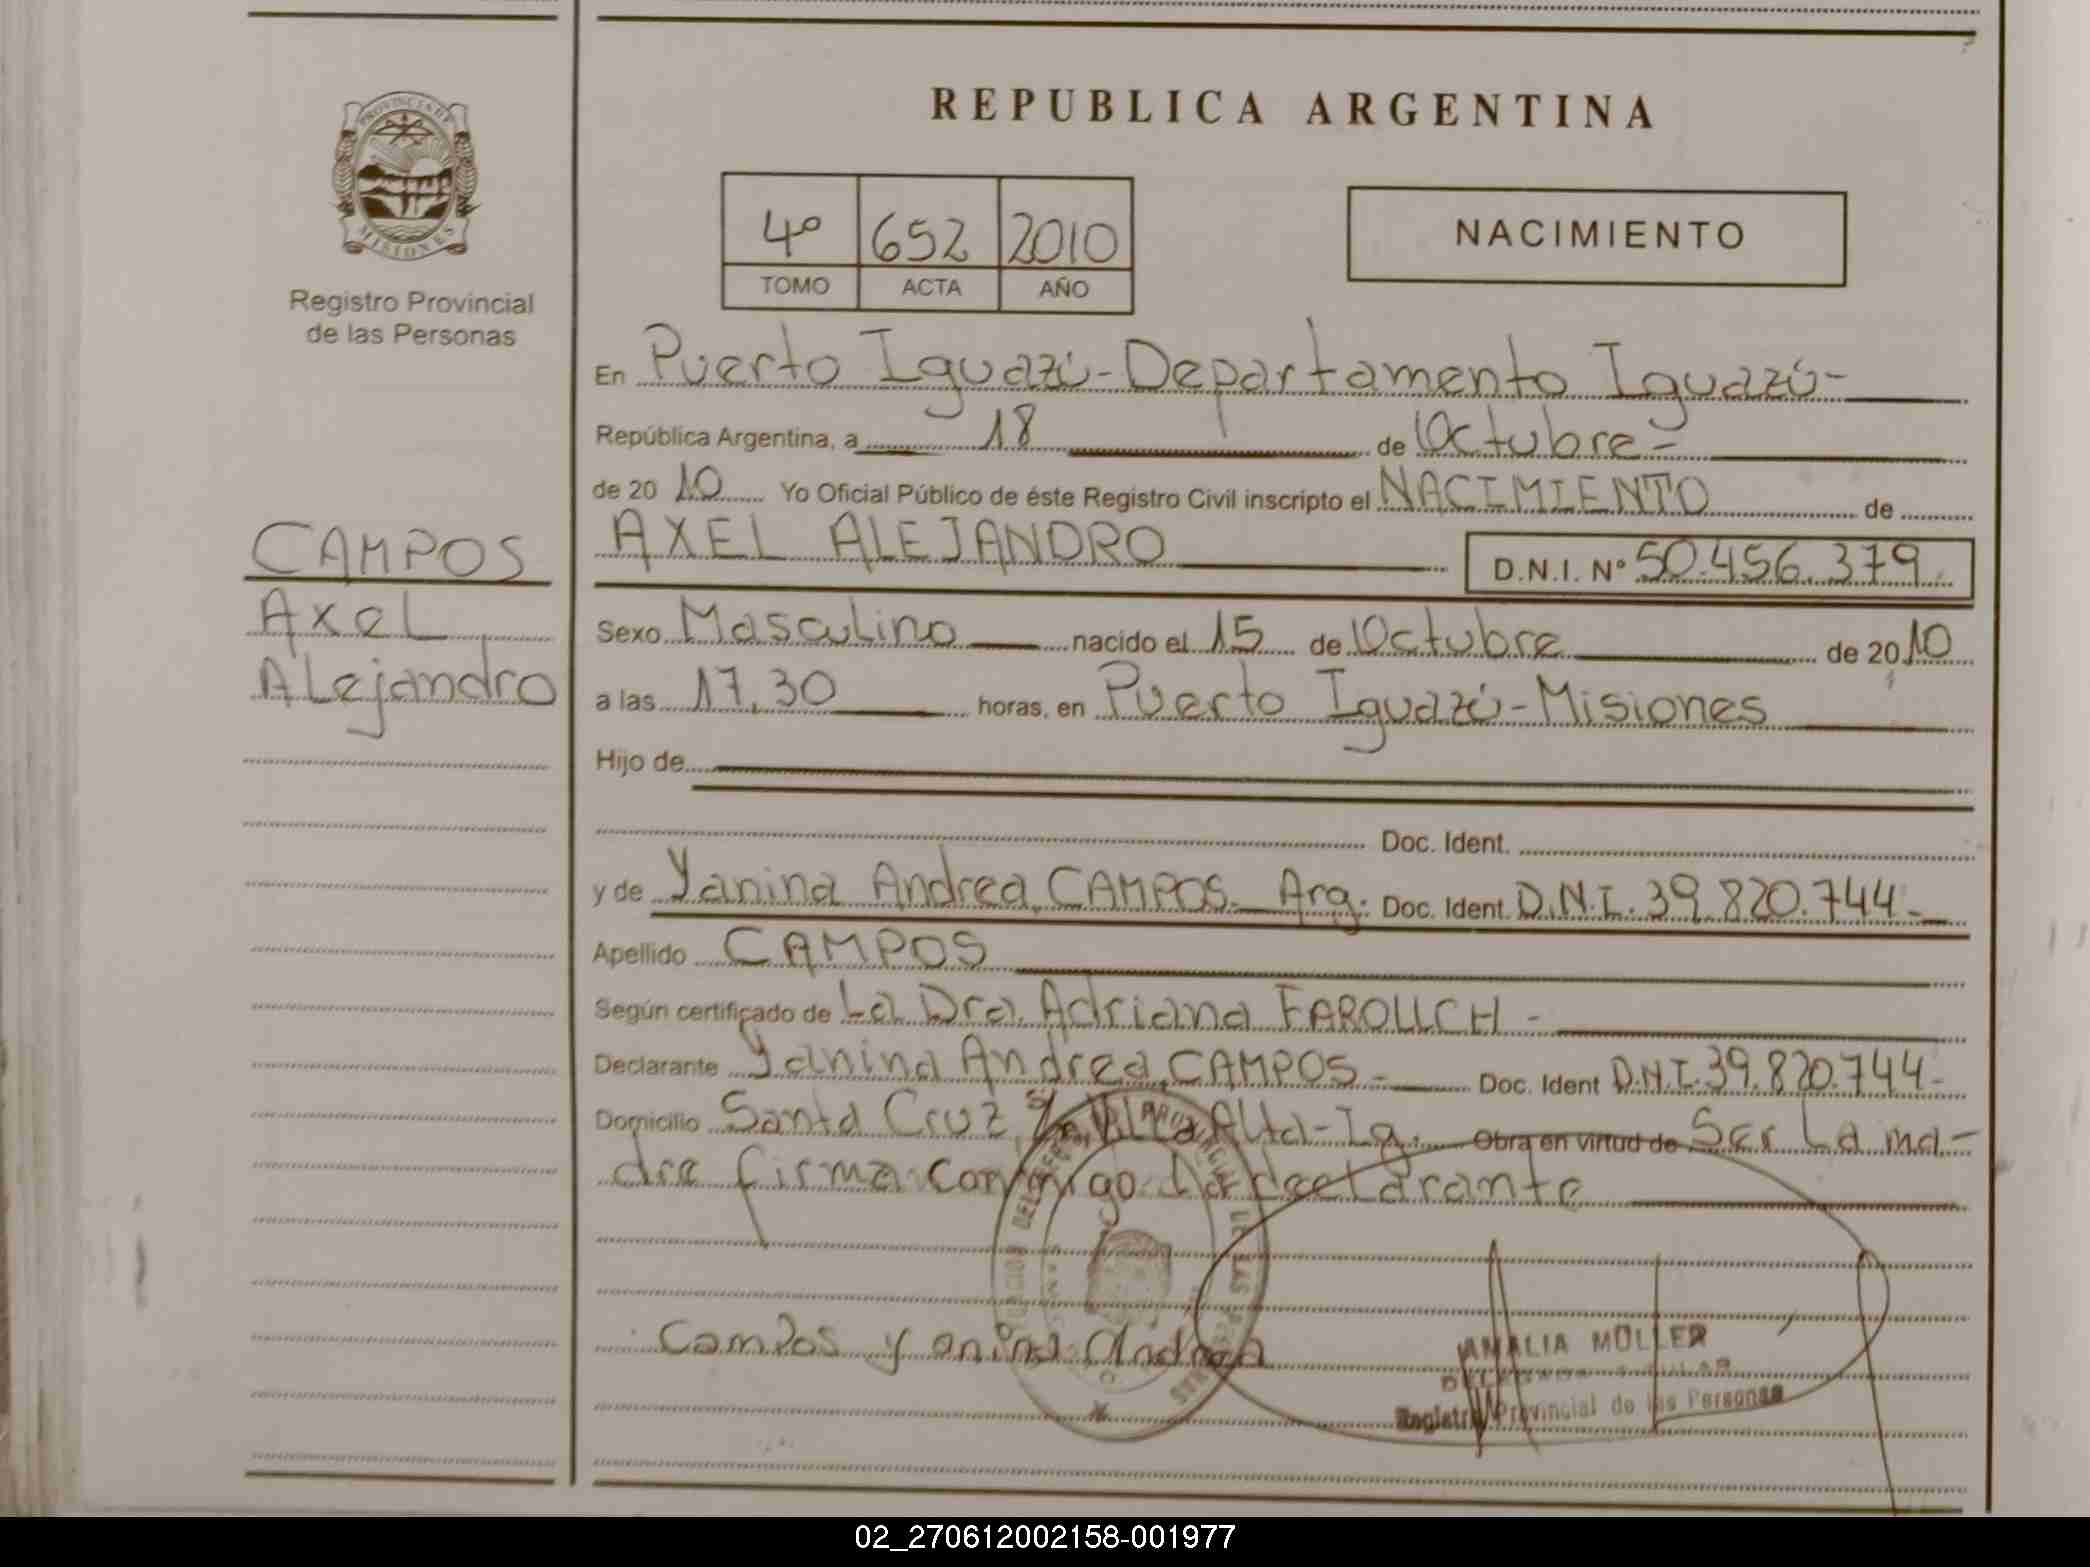 PROVINCIA DE
MISIONES
Registro Provincial
de las Personas
CAMPOS
Axel
Alejandro
REPUBLICA ARGENTINA
4º 652 2010
TOMO ACTA AÑO
NACIMIENTO
En Puerto Iguazú-Departamento Iguazú-
República Argentina, a 18 de Octubre-
de 2010 Yo Oficial Público de éste Registro Civil inscripto el NACIMIENTO de
AXEL ALEJANDRO D.N.I. Nº 50.456.379
Sexo Masculino nacido el 15 de Octubre de 2010
a las 17,30 horas, en Puerto Iguazú-Misiones
Hijo de
Doc. Ident.
y de Yanina Andrea CAMPOS- Arg. Doc. Ident. D.N.I. 39.820.744-
Apellido CAMPOS
Según certificado de La Dra. Adriana FAROUCH-
Declarante Yanina Andrea CAMPOS- Doc. Ident D.N.I. 39.820.744-
Domicilio Santa Cruz s/n, Villa Alta-Ig. Obra en virtud de Ser La ma-
dre firma conmigo La declarante
Campos Yanina Andrea
ANALIA MÜLLER
Registro Provincial de las Personas
02_270612002158-001977